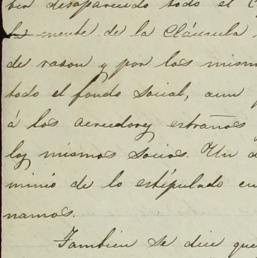 bia desaparecido todo el C
la mente de la Cláusula
de razon y por los mismo
todo el fondo social, aun
á los acreedores estraños
los mismos socios. Un
minió de lo estipulado en
namos.
Tambien se dice que